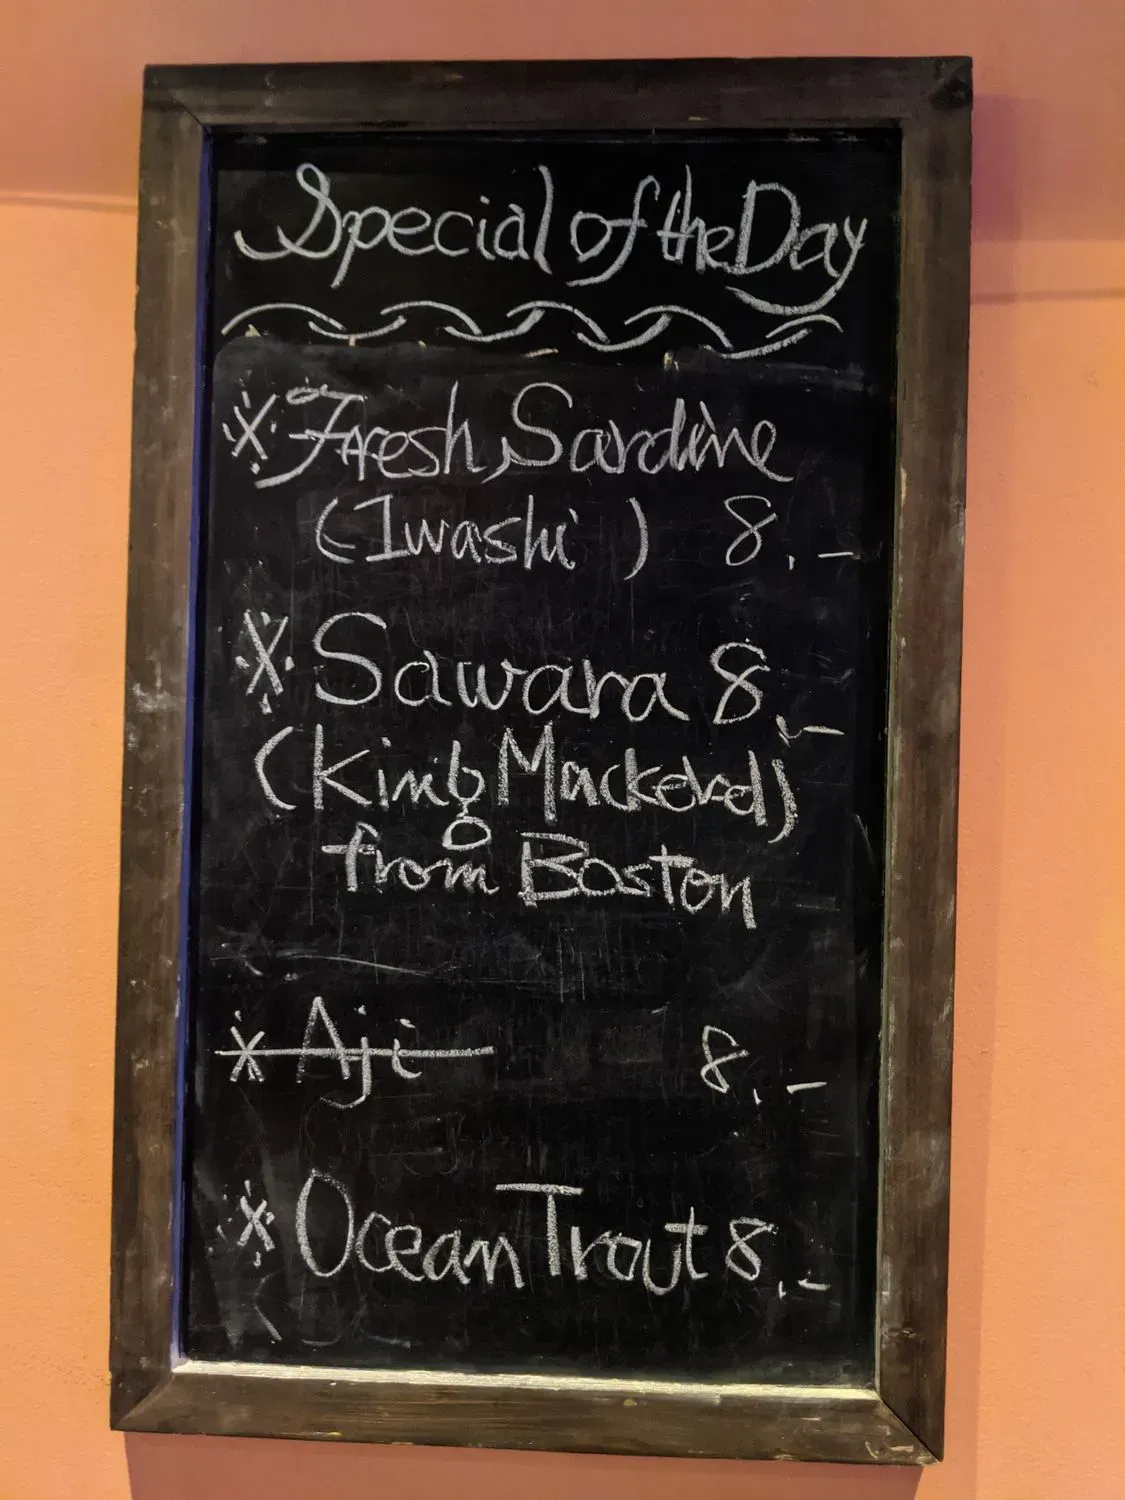 Special of the Day
※ Fresh Sardine
(Iwashi) 8.-
※ Sawara 8.-
(King Mackerel)
from Boston
* Aji 8.-
※ Ocean Trout 8.-